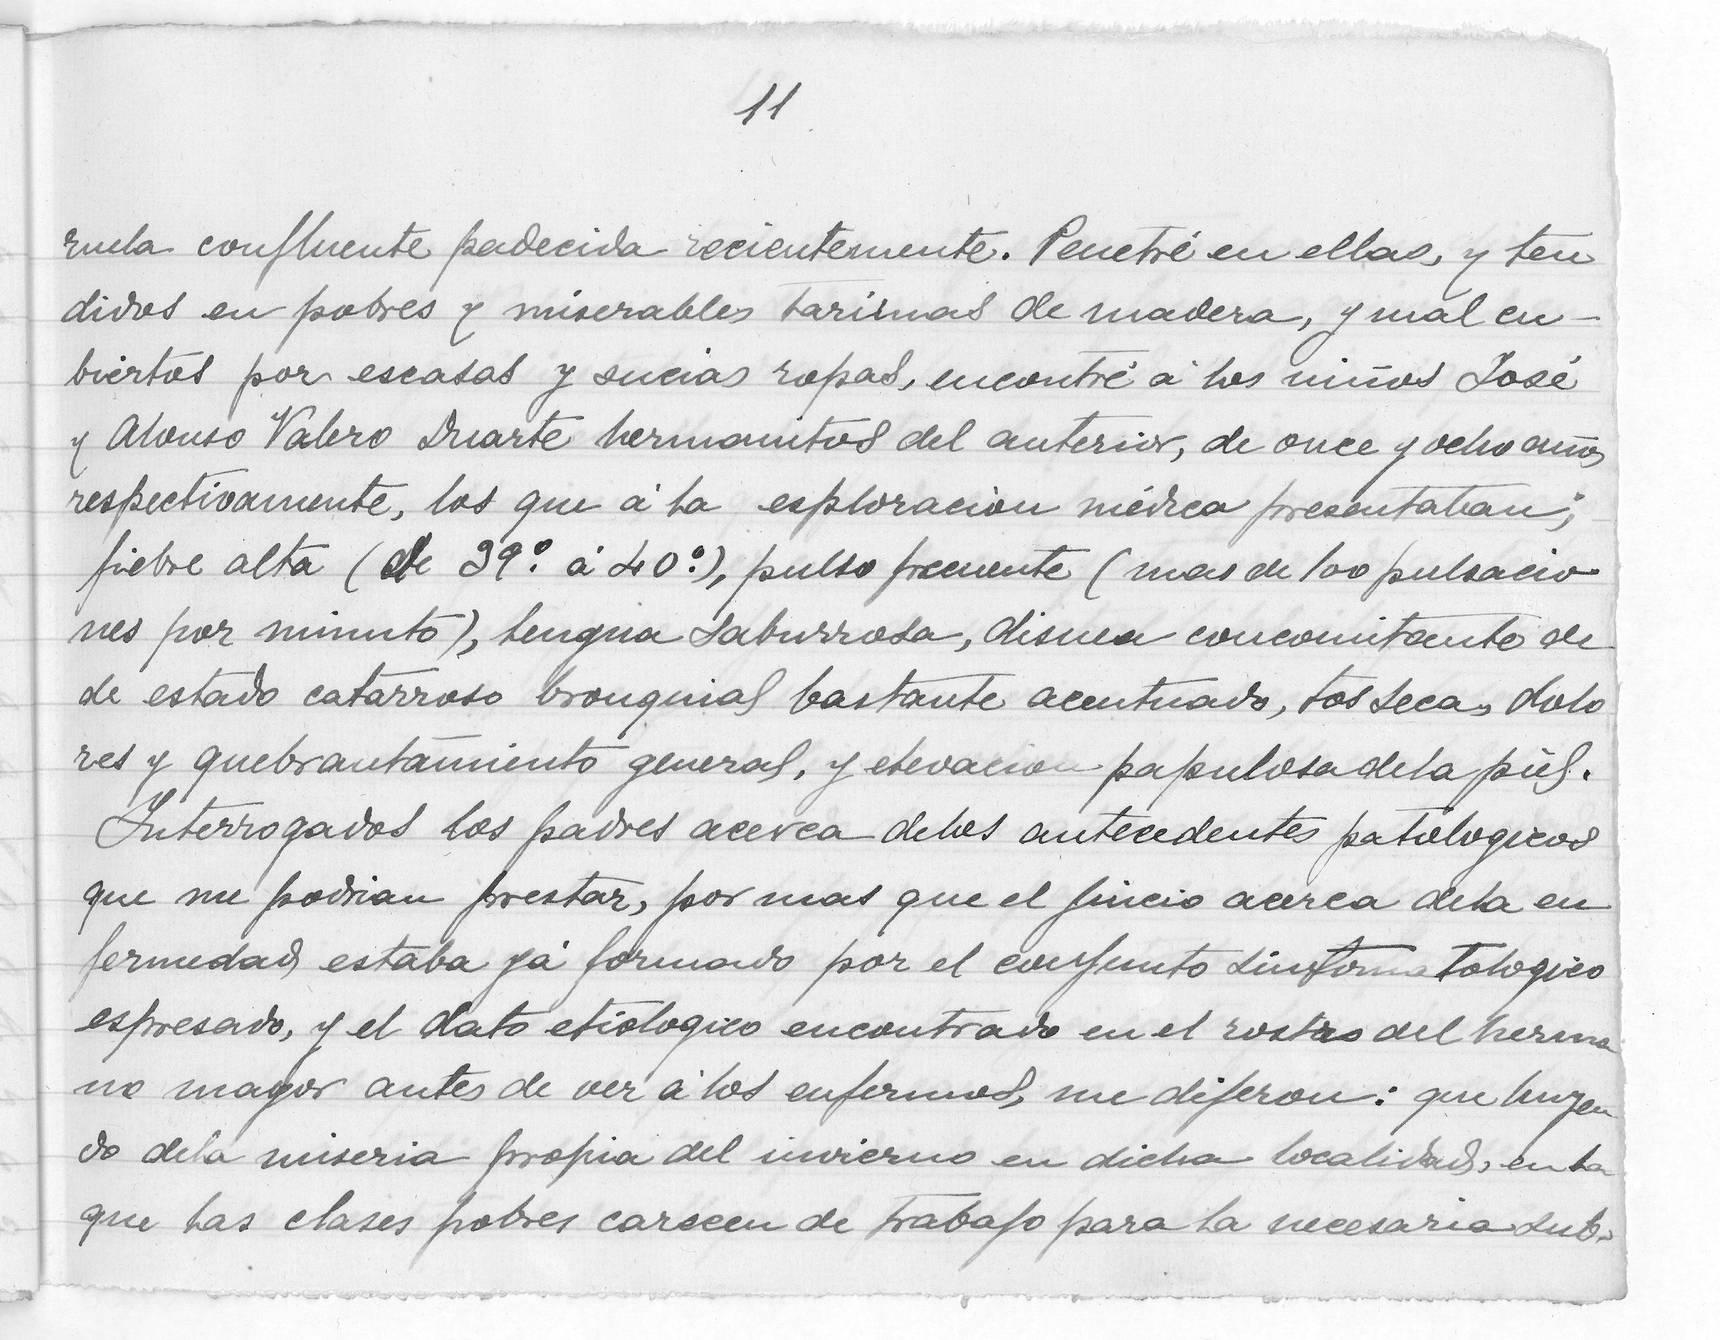 11
ruela confluente padecida recientemente. Penetré en ellas, y ten
didos en pobres y miserables tarimas de madera, y mal cu-
biertos por escasas y sucias ropas, encontré á los niños José
y Alonso Valero Duarte hermanitos del anterior, de once y ocho años
respectivamente, los que á la esploracion médica presentaban;
fiebre alta (de 39º. á 40º.), pulso frecuente (mas de 100 pulsacio
nes por minuto), lengua saburrosa, disnea concomitante de
de estado catarroso bronquial bastante acentuado, tos seca, dolo
res y quebrantamiento general, y elevacion papulosa dela piel.
Interrogados los padres acerca delos antecedentes patologicos
que me podrian prestar, por mas que el juicio acerca dela en
fermedad estaba yá formado por el conjunto sintomatologico
espresado, y el dato etiologico encontrado en el rostro del herma
no mayor antes de ver á los enfermos, me dijeron: que huyen
do dela miseria propia del invierno en dicha localidad, en la
que las clases pobres carecen de trabajo para la necesaria sub-